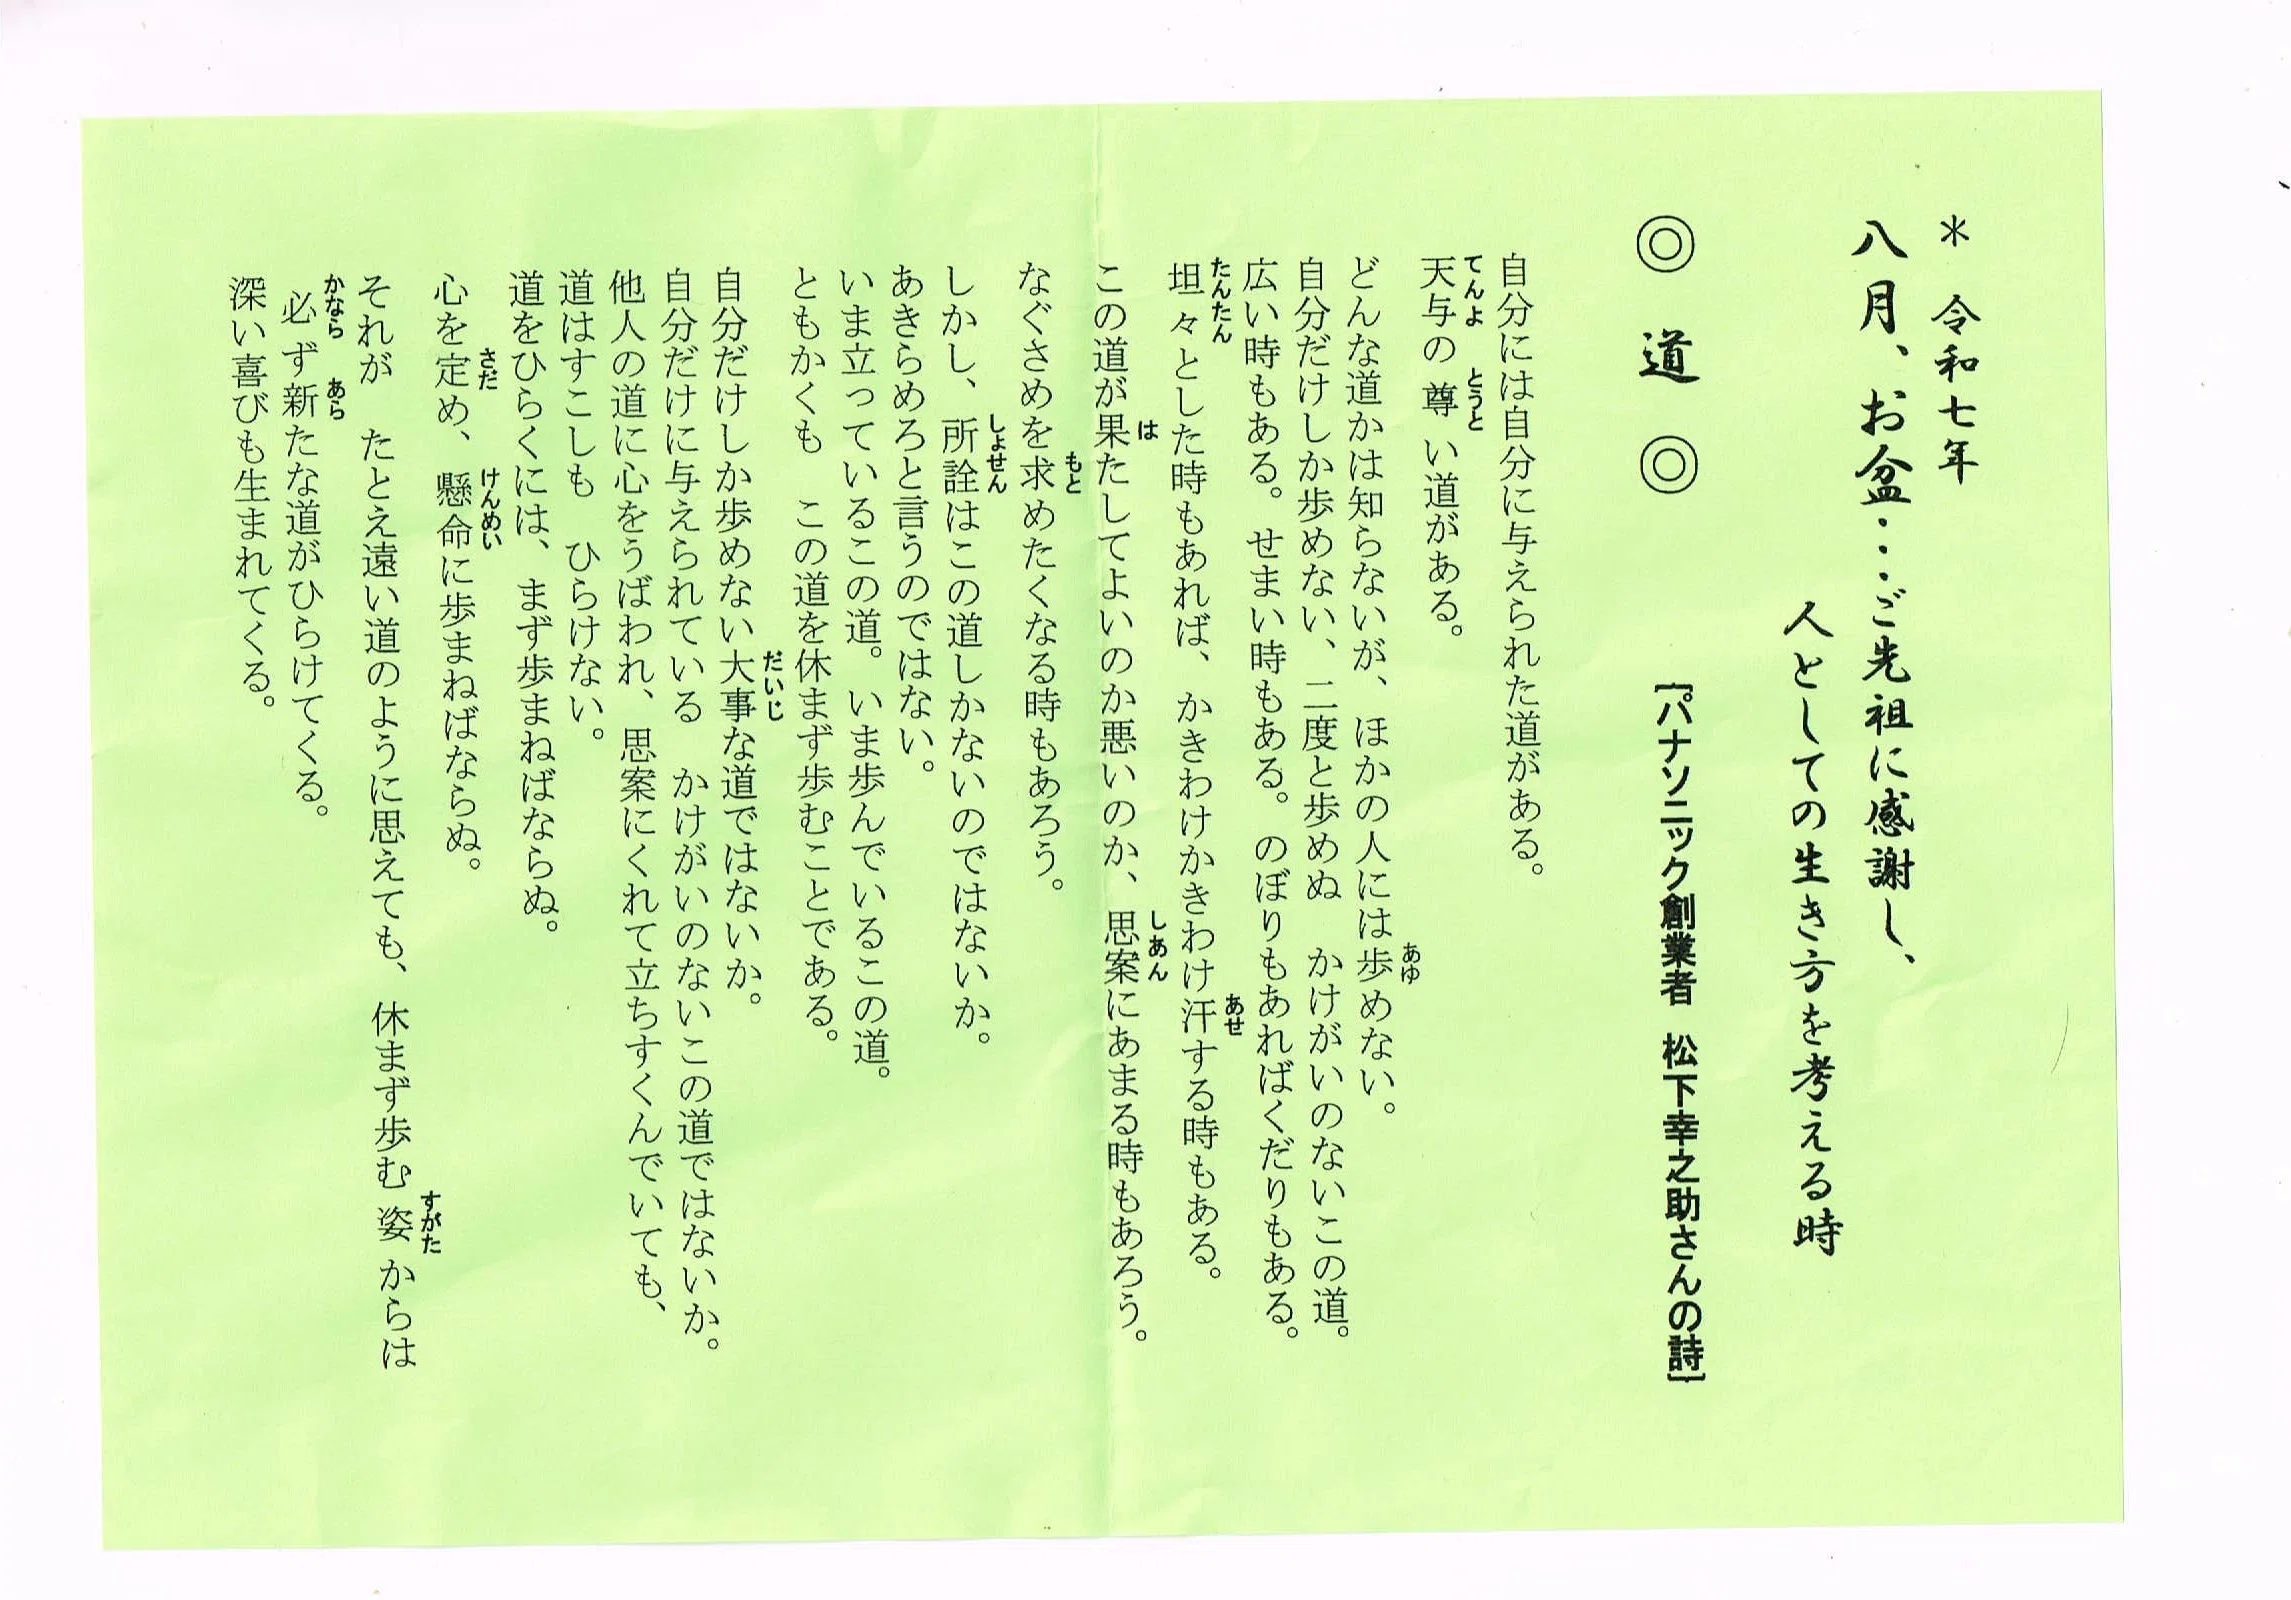 ＊ 令和七年
八月、お盆・・・ご先祖に感謝し、
人としての生き方を考える時
◎ 道 ◎ 〔パナソニック創業者 松下幸之助さんの詩〕
自分には自分に与えられた道がある。
天与の尊い道がある。
てんよ とうと
どんな道かは知らないが、ほかの人には歩めない。
あゆ
自分だけしか歩めない、二度と歩めぬ かけがいのないこの道。
広い時もある。せまい時もある。のぼりもあればくだりもある。
坦々とした時もあれば、かきわけかきわけ汗する時もある。
たんたん あせ
この道が果たしてよいのか悪いのか、思案にあまる時もあろう。
は しあん
なぐさめを求めたくなる時もあろう。
もと
しかし、所詮はこの道しかないのではないか。
しょせん
あきらめろと言うのではない。
いま立っているこの道。いま歩んでいるこの道。
ともかくも この道を休まず歩むことである。
自分だけしか歩めない大事な道ではないか。
だいじ
自分だけに与えられている かけがいのないこの道ではないか。
他人の道に心をうばわれ、思案にくれて立ちすくんでいても、
道はすこしも ひらけない。
道をひらくには、まず歩まねばならぬ。
心を定め、懸命に歩まねばならぬ。
さだ けんめい
それが たとえ遠い道のように思えても、休まず歩む姿からは
すがた
必ず新たな道がひらけてくる。
かなら あら
深い喜びも生まれてくる。